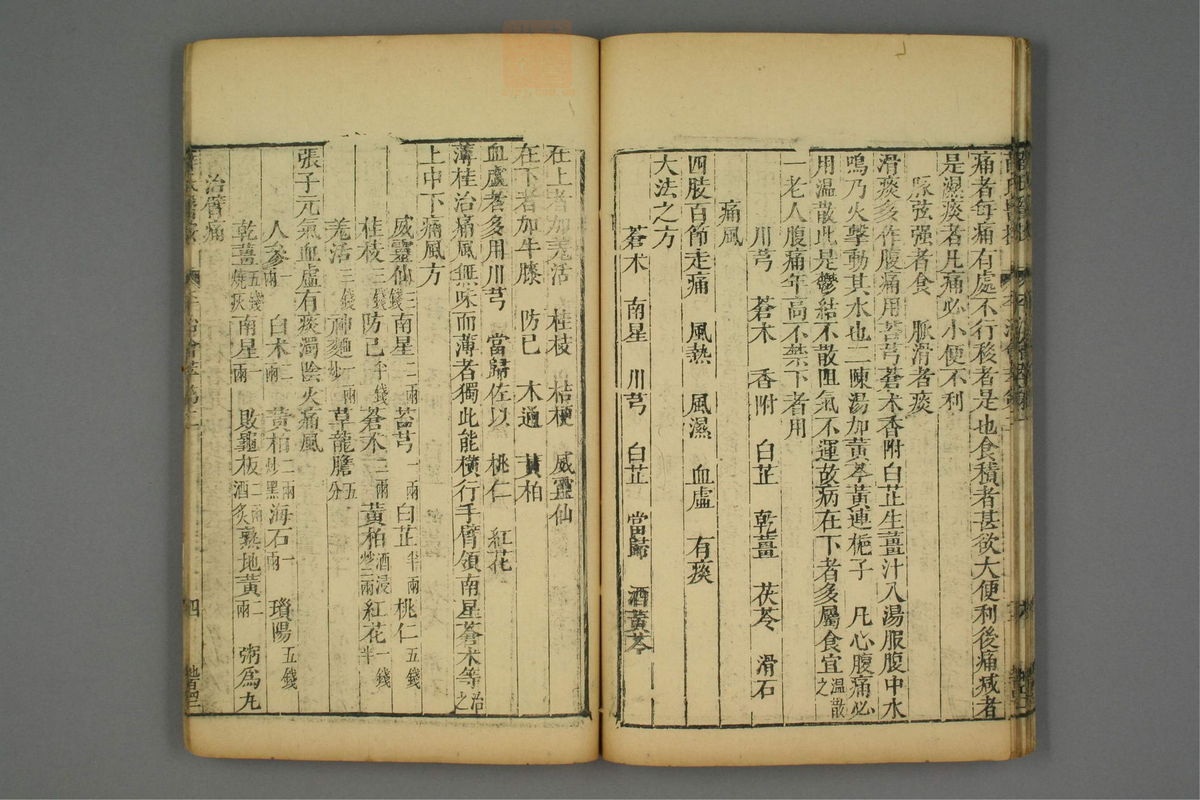 痛者每痛有處不行移者是也食積者甚欲大便利後痛减者
是濕痰者凡痛必小便不利
脉弦强者食　脉滑者痰
滑痰多作腹痛用苔芎蒼木香附白芷生薑汁入湯服腹中水
鳴乃火擊動其水也二陳湯加黃芩黃連梔子　凡心腹痛必
用温散此是鬱結不散阻氣不運故病在下者多屬食宜温散之
一老人腹痛年高不禁下者用
川芎　蒼木　香附　白芷　乾薑　茯苓　滑石
痛風
四肢百節走痛　風熱　風濕　血虛　有痰
大法之方
蒼术　南星　川芎　白芷　當歸　酒黃芩
在上者加羗活　桂枝　桔梗　威靈仙
在下者加牛膝　防已　木通　黃柏
血虛者多用川芎　當歸佐以　桃仁　紅花
薄桂治痛風無味而薄者獨此能橫行手臂領南星蒼术等治之
上中下痛風方
威靈仙三錢南星二兩苔芎一兩白芷半兩桃仁五錢
桂枝三錢防已半錢蒼术二兩黃柏酒浸炒二兩紅花一錢半
羗活三錢神麯炒一兩草龍膽五分
張子元氣血虛有痰濁陰火痛風
人參一兩白术二兩黃柏二兩炒黑海石一兩瑣陽五錢
乾薑五錢燒灰南星一兩敗龜板二兩酒炙熟地黃二兩粥爲丸
治臂痛
四